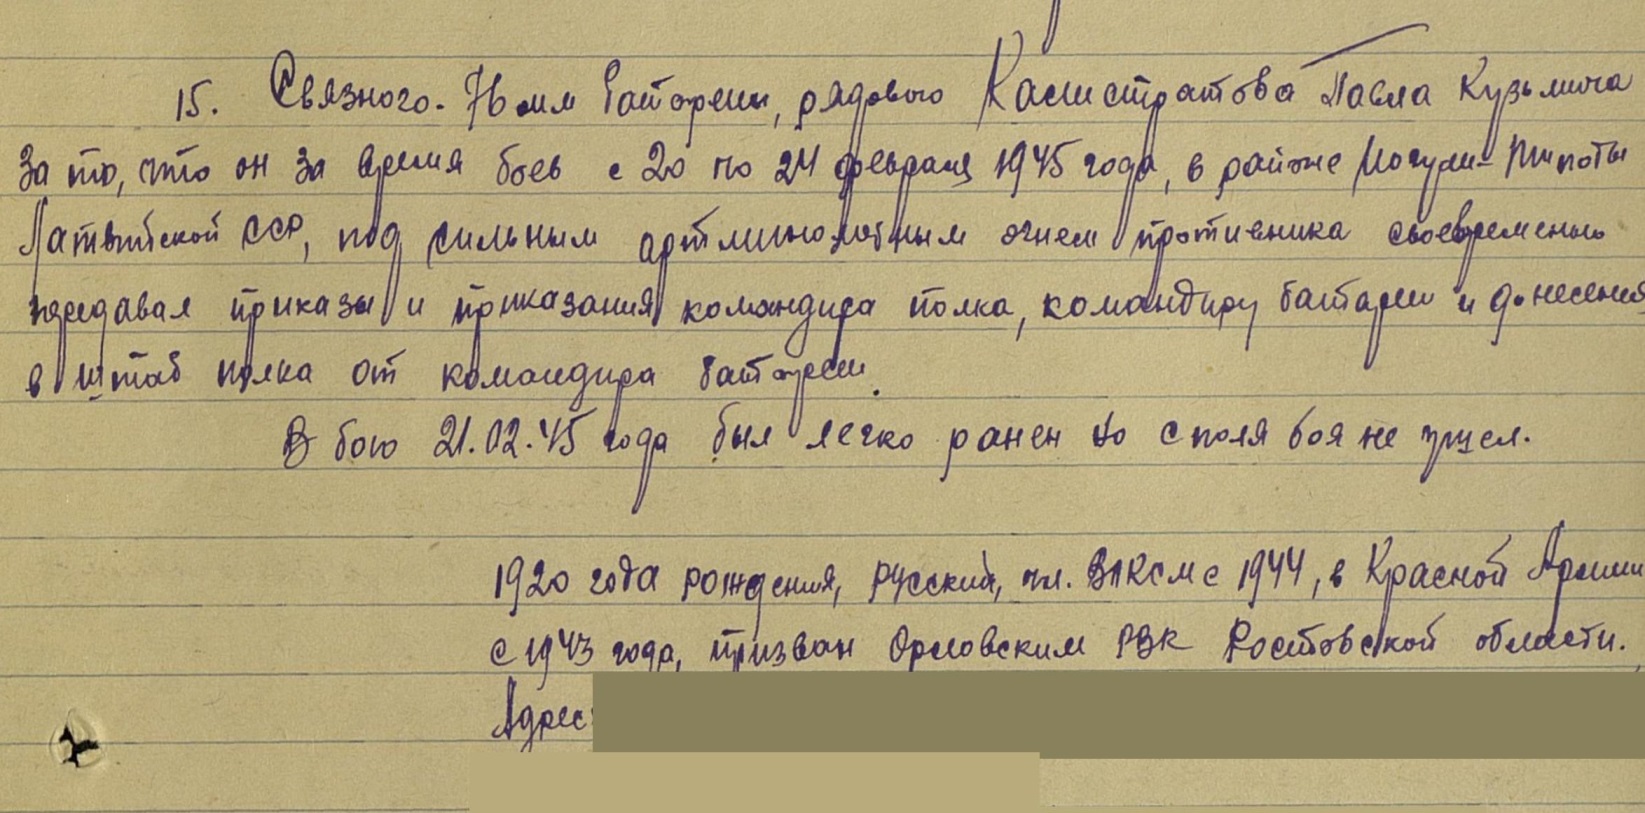 15. Связного 76 мм батареи, рядового Калистратова Павла Кузьмича
За то, что он за время боев с 20 по 24 февраля 1945 года, в районе
Латвийской ССР, под сильным артминометным огнем противника своевременно
передавал приказы и приказания командира полка, командиру батареи и донесения
в штаб полка от командира батареи.
В бою 21.02.45 года был легко ранен но с поля боя не ушел.
1920 года рождения, русский, чл. ВЛКСМ с 1944, в Красной Армии
с 1943 года, призван Орловским РВК Ростовской области.
Адрес: